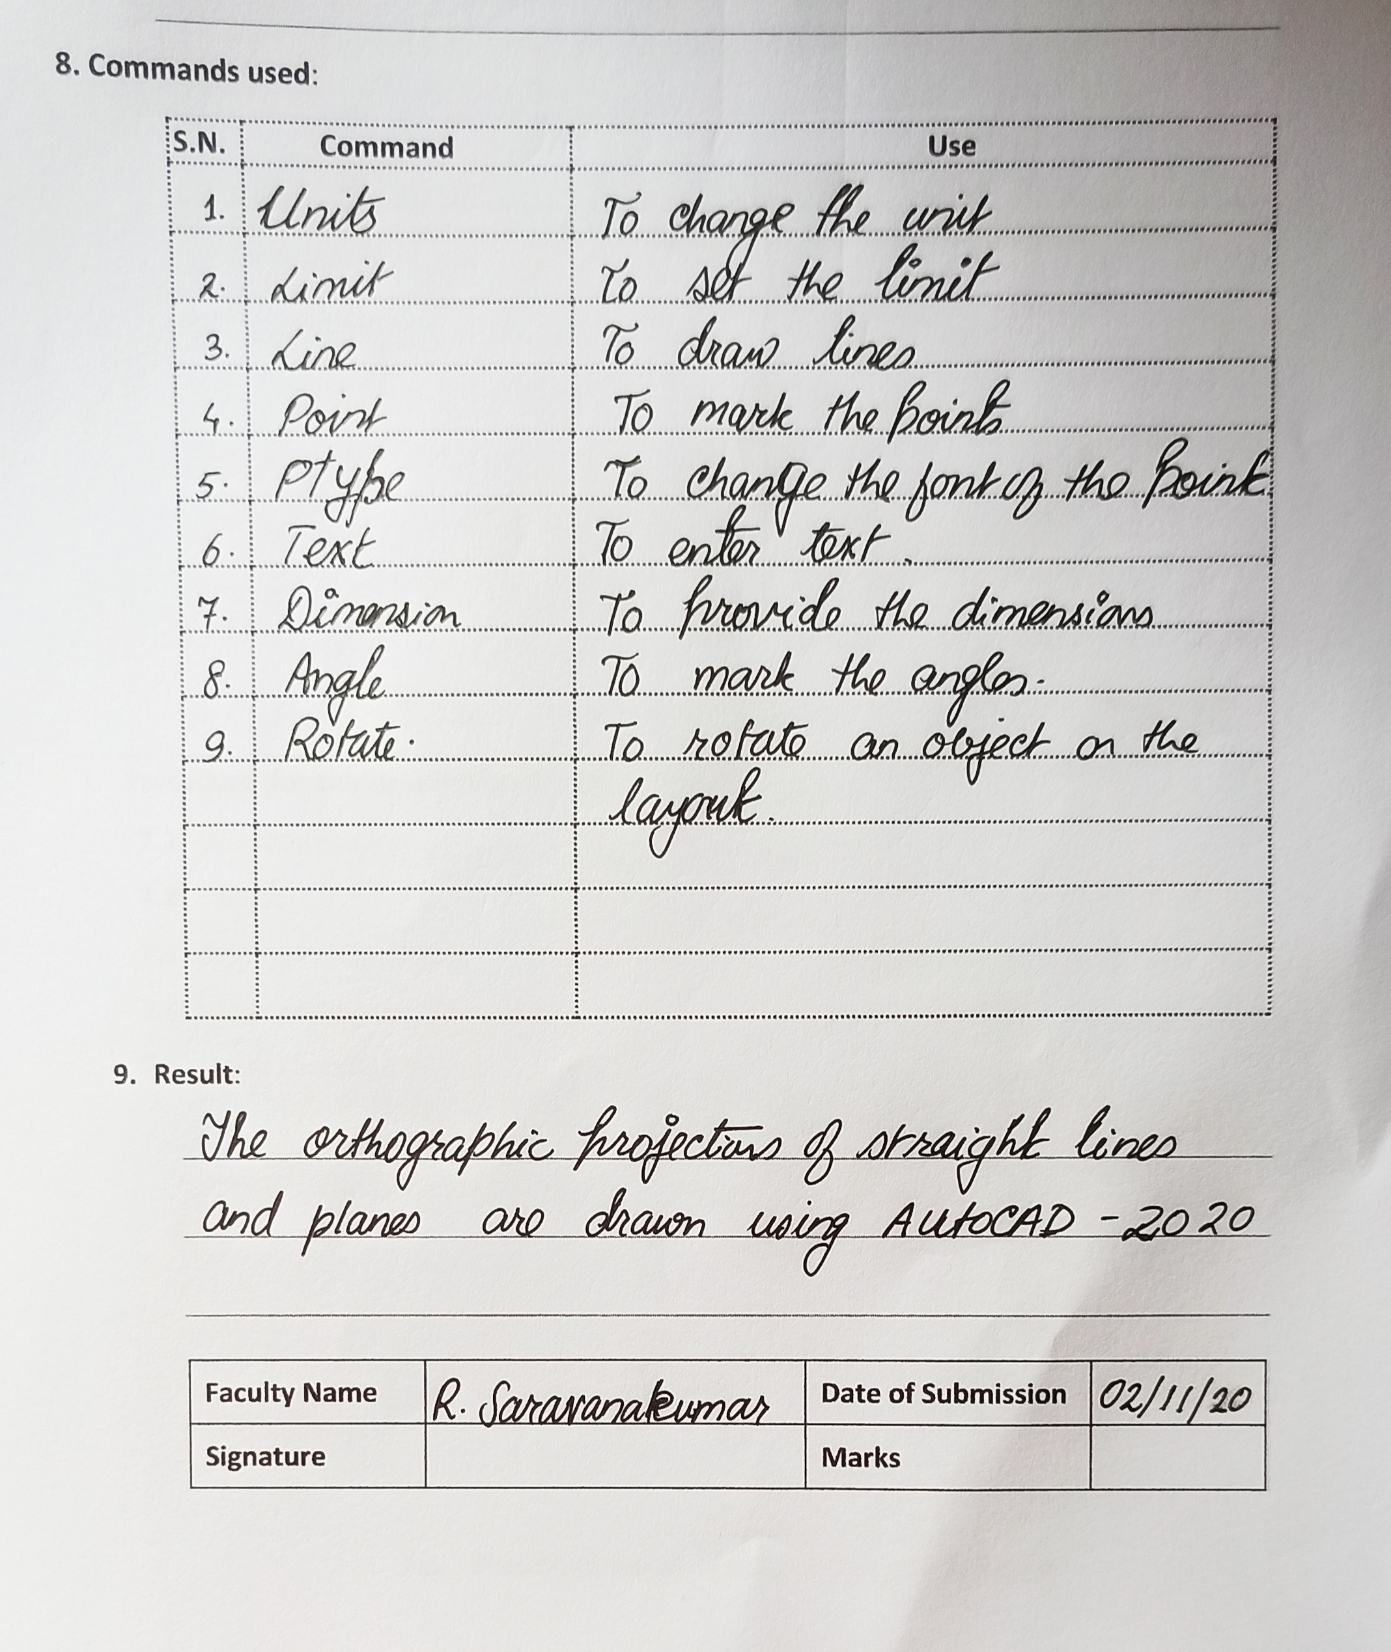 8. Commands used:
S.N. Command Use
1. Units To change the unit
2. Limit To set the limit
3. Line To draw lines
4. Point To mark the points
5. Ptype To change the font of the point
6. Text To enter text.
7. Dimension To provide the dimensions
8. Angle To mark the angles.
9. Rotate. To rotate an object on the
layout.
9. Result:
The orthographic projections of straight lines
and planes are drawn using AutoCAD - 2020
Faculty Name R. Saravanakumar Date of Submission 02/11/20
Signature Marks